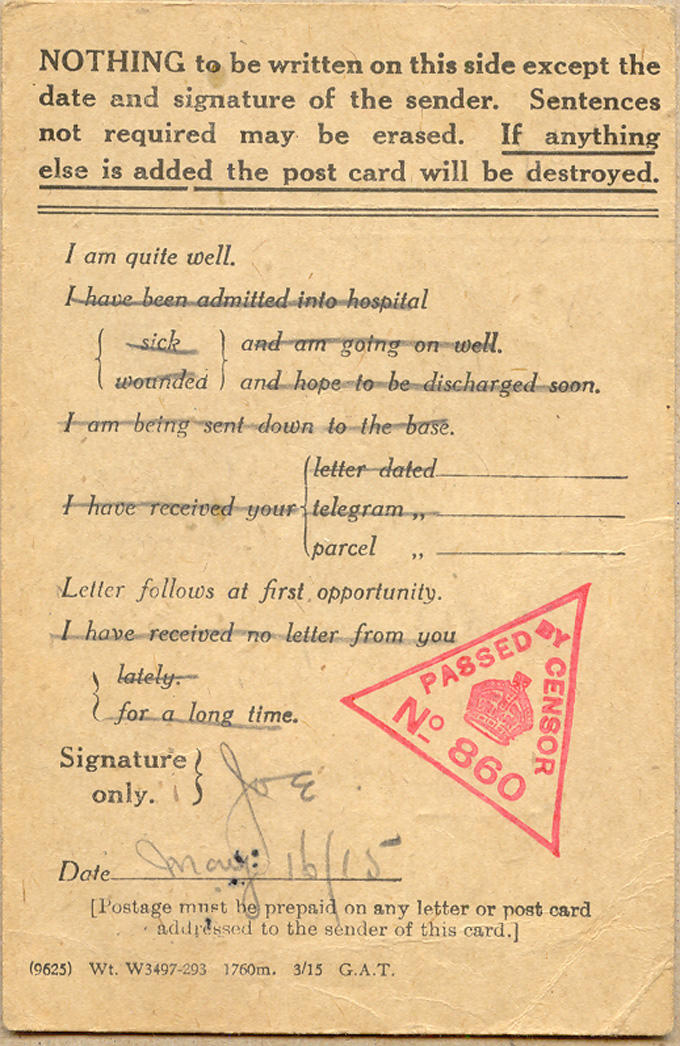 NOTHING to be written on this side except the
date and signature of the sender. Sentences
not required may be erased. If anything
else is added the post card will be destroyed.
I am quite well.
I have been admitted into hospital
sick } and am going on well.
wounded } and hope to be discharged soon.
I am being sent down to the base.
letter dated
I have received your telegram „
parcel „
Letter follows at first opportunity.
I have received no letter from you
lately.
for a long time.
PASSED BY CENSOR
No 860
Signature
only.
Joe
Date May 16/15
[Postage must be prepaid on any letter or post card
addressed to the sender of this card.]
(9625) Wt. W3497-293 1760m. 3/15 G.A.T.